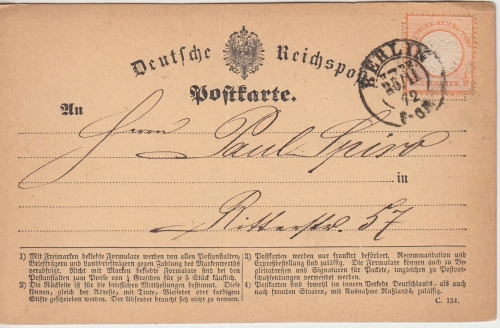 Deutsche Reichspost
BERLIN
72
Postkarte.
An
Herrn Paul Spiro
in
Ritterstr. 57
1) Mit Freimarken beklebte Formulare werden von allen Postanstalten,
Briefträgern und Landbriefträgern gegen Zahlung des Markenwerths
verabfolgt. Nicht mit Marken beklebte Formulare sind bei den
Postanstalten zum Preise von ¼ Groschen für je 5 Stück käuflich.
2) Die Rückseite ist für die brieflichen Mittheilungen bestimmt. Diese
können, gleich der Adresse, mit Tinte, Bleifeder oder farbigen
Stifte geschrieben werden. Der Absender braucht sich nicht zu nennen.
3) Postkarten werden nur frankirt befördert. Recommandation und
Expreßbestellung sind zulässig. Die Formulare können auch zu
signaturen für Packete, ungleichen zu Postvor-
schußsendungen verwendet werden.
4) Postkarten sind sowohl im innern Verkehr Deutschlands, als auch
nach fremden Staaten, mit Ausnahme Rußlands, zulässig.
C. 154.